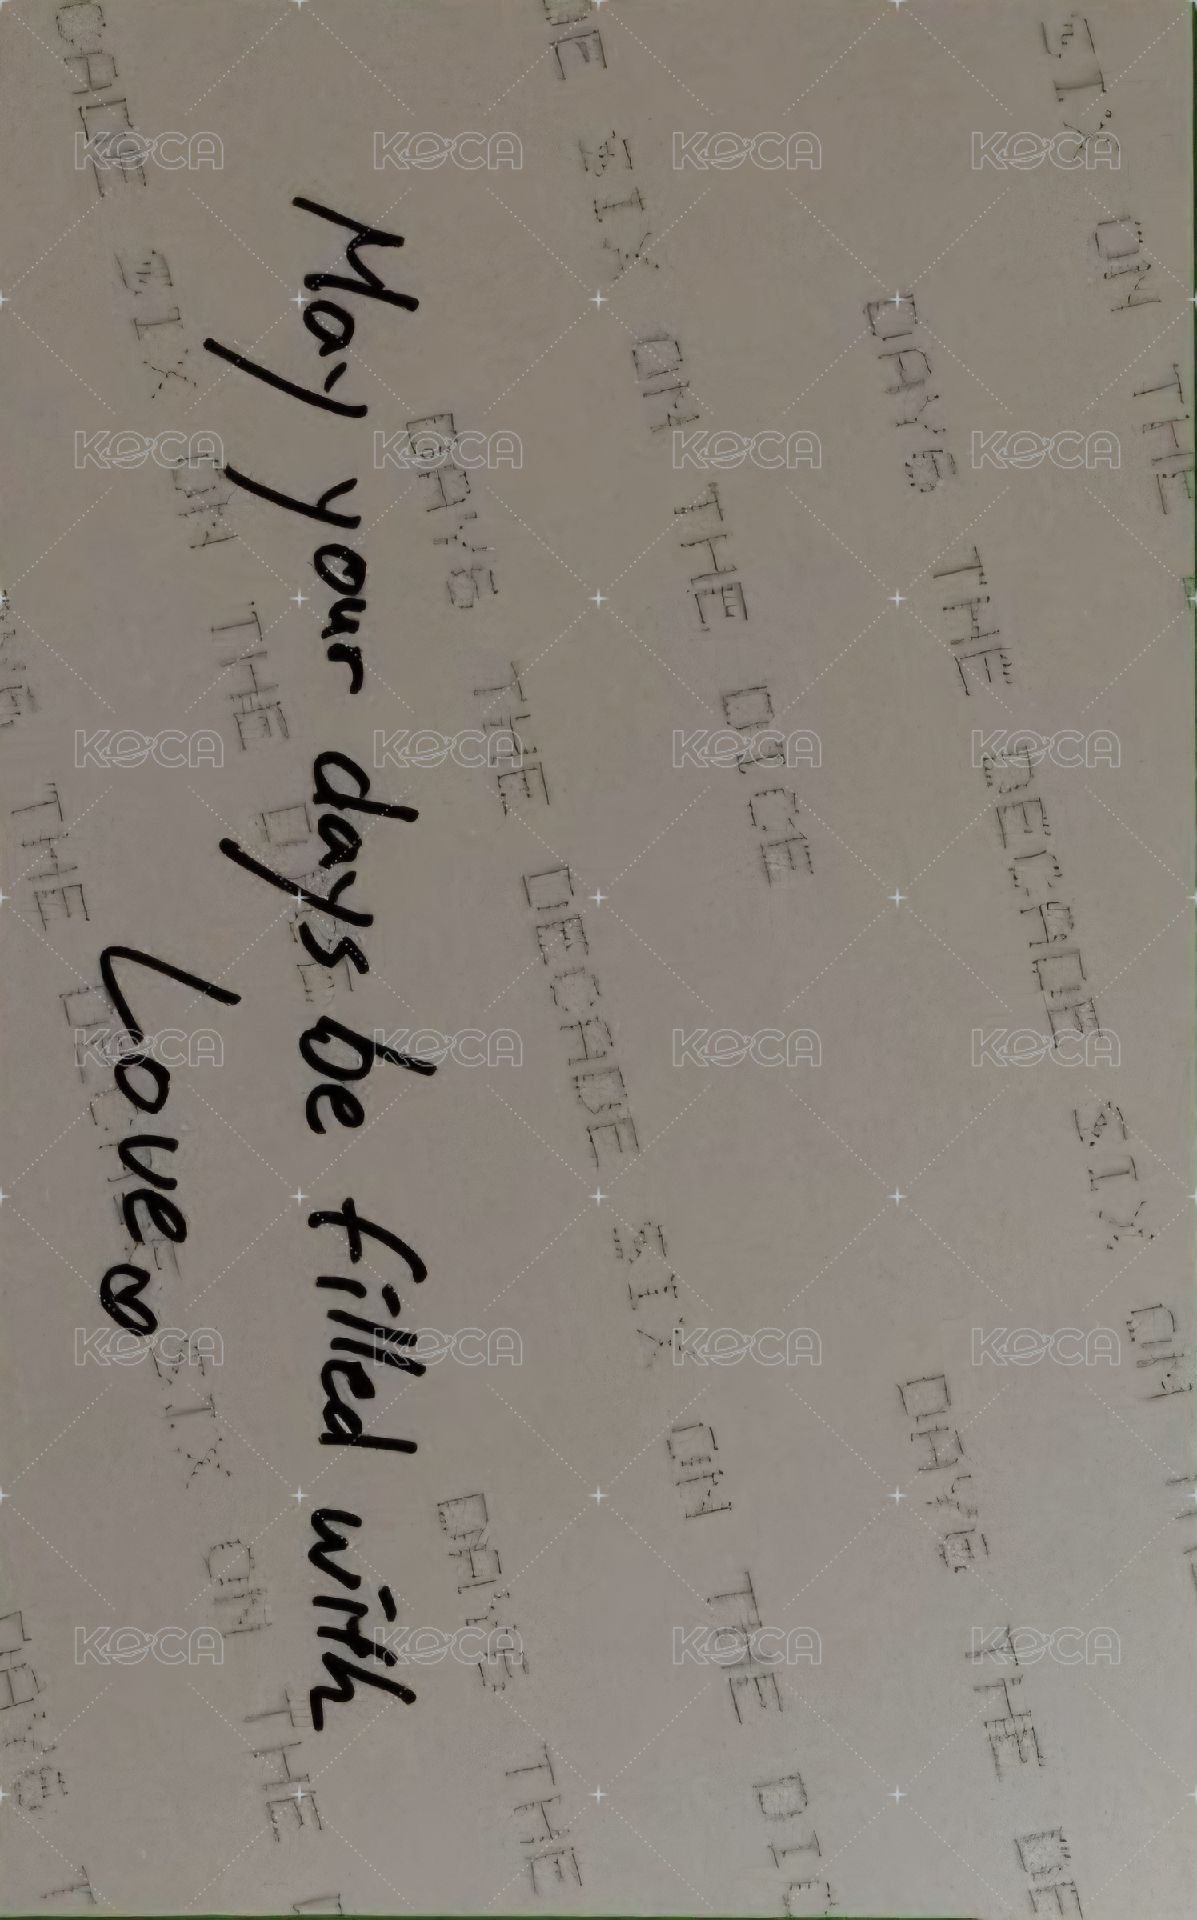 May your days be filled with
Love ♡
SIX ON THE
DAY6 THE DECADE SIX ON
DAY6 THE DE
SIX ON THE DICE
DAY6 THE DECADE SIX ON THE DIC
DAY6 THE
CADE SIX ON THE DICE
THE DECADE SIX ON THE
DAY6
KOCA KOCA KOCA KOCA
KOCA KOCA KOCA KOCA
KOCA KOCA KOCA KOCA
KOCA KOCA KOCA KOCA
KOCA KOCA KOCA KOCA
KOCA KOCA KOCA KOCA